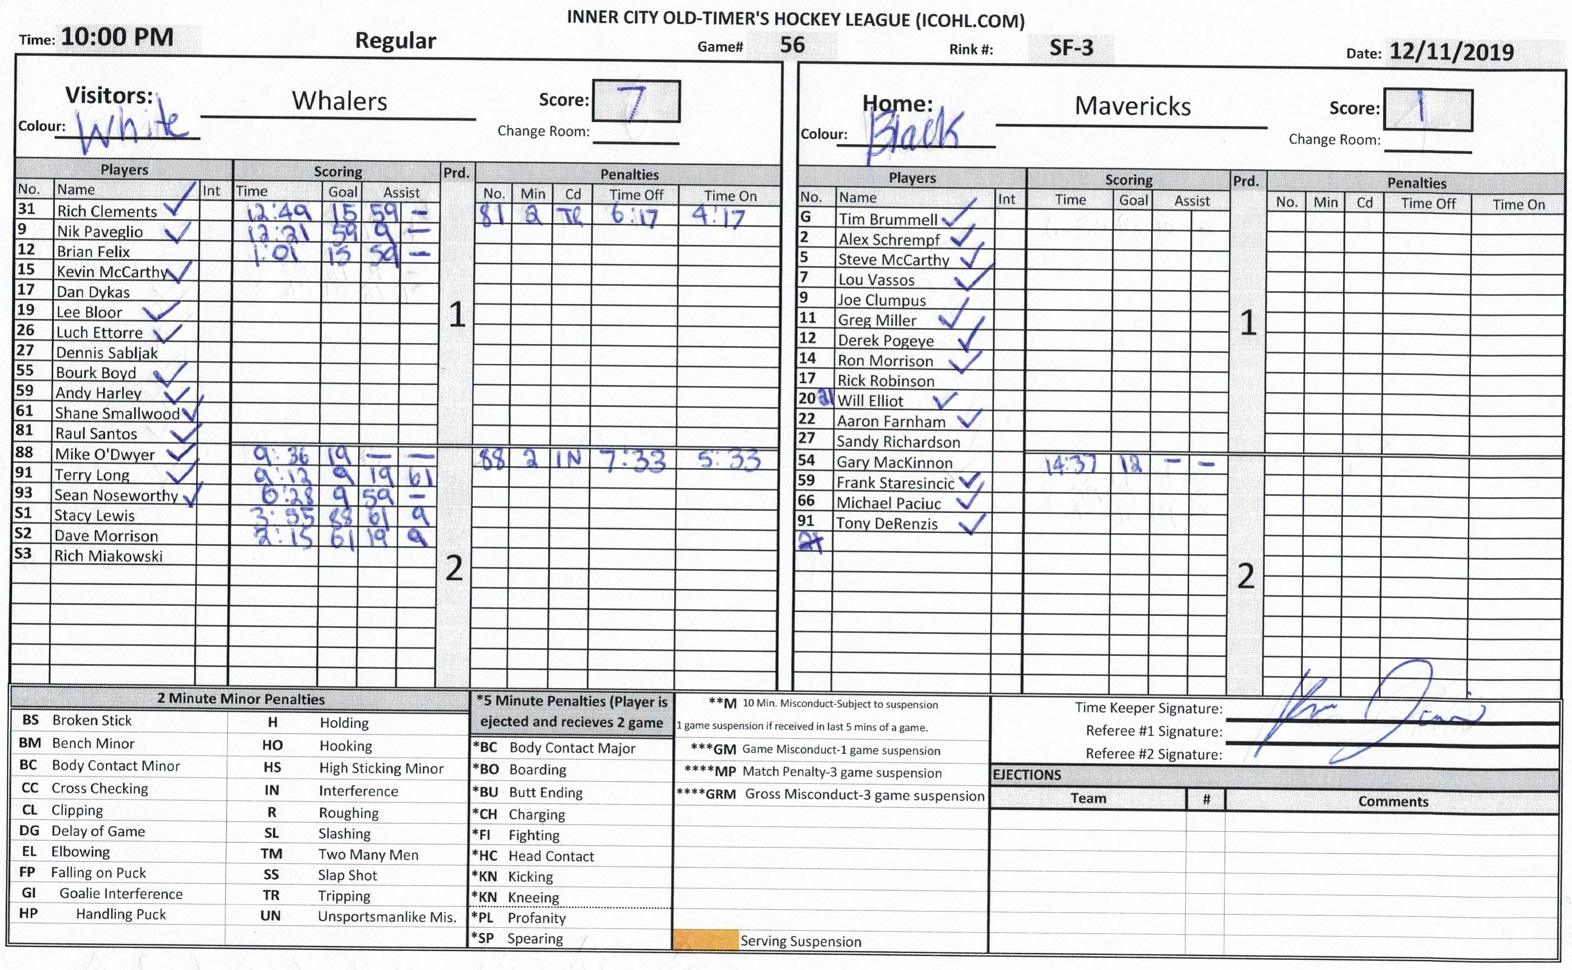 INNER CITY OLD-TIMER'S HOCKEY LEAGUE (ICOHL.COM)
Time: 10:00 PM Regular Game# 56 Rink #: SF-3 Date: 12/11/2019
Visitors: Whalers Score: 7
Colour: White Change Room:
Players Scoring Prd. Penalties
No. Name Int Time Goal Assist No. Min Cd Time Off Time On
31 Rich Clements 12:49 15 59 – 81 2 TR 6:17 4:17
9 Nik Paveglio 12:21 59 9 –
12 Brian Felix 1:01 15 59 –
15 Kevin McCarthy
17 Dan Dykas
19 Lee Bloor
1
26 Luch Ettorre
27 Dennis Sabljak
55 Bourk Boyd
59 Andy Harley
61 Shane Smallwood
81 Raul Santos
88 Mike O'Dwyer 9:36 19 – – 88 2 IN 7:33 5:33
91 Terry Long 9:12 9 19 61
93 Sean Noseworthy 6:28 9 59 –
S1 Stacy Lewis 3:55 88 61 9
S2 Dave Morrison 2:15 61 19 9
S3 Rich Miakowski
2
Home: Mavericks Score: 1
Colour: Black Change Room:
Players Scoring Prd. Penalties
No. Name Int Time Goal Assist No. Min Cd Time Off Time On
G Tim Brummell
2 Alex Schrempf
5 Steve McCarthy
7 Lou Vassos
9 Joe Clumpus
11 Greg Miller
1
12 Derek Pogeye
14 Ron Morrison
17 Rick Robinson
20 21 Will Elliot
22 Aaron Farnham
27 Sandy Richardson
54 Gary MacKinnon 14:37 12 – –
59 Frank Staresincic
66 Michael Paciuc
91 Tony DeRenzis
2
2 Minute Minor Penalties
BS Broken Stick H Holding
BM Bench Minor HO Hooking
BC Body Contact Minor HS High Sticking Minor
CC Cross Checking IN Interference
CL Clipping R Roughing
DG Delay of Game SL Slashing
EL Elbowing TM Two Many Men
FP Falling on Puck SS Slap Shot
GI Goalie Interference TR Tripping
HP Handling Puck UN Unsportsmanlike Mis.
*5 Minute Penalties (Player is
ejected and recieves 2 game
*BC Body Contact Major
*BO Boarding
*BU Butt Ending
*CH Charging
*FI Fighting
*HC Head Contact
*KN Kicking
*KN Kneeing
*PL Profanity
*SP Spearing
**M 10 Min. Misconduct-Subject to suspension
1 game suspension if received in last 5 mins of a game.
***GM Game Misconduct-1 game suspension
****MP Match Penalty-3 game suspension
****GRM Gross Misconduct-3 game suspension
Serving Suspension
Time Keeper Signature:
Referee #1 Signature:
Referee #2 Signature:
EJECTIONS
Team # Comments